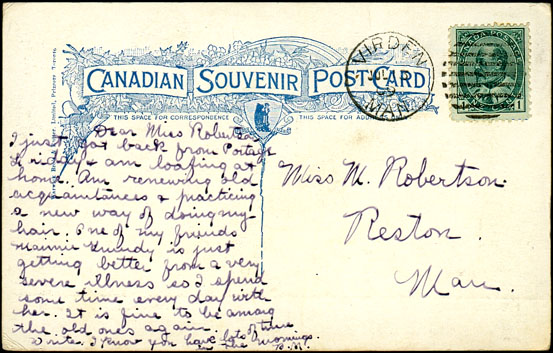 CANADIAN SOUVENIR POST CARD
THIS SPACE FOR CORRESPONDENCE
THIS SPACE FOR ADDRESS
VIRDEN
MAN
CANADA POSTAGE
1
Dear Miss Robertson
I just got back from Portage
Friday & am loafing at
home. Am renewing old
acquaintances & practicing
a new way of doing my
hair. One of my friends
Mamie Grundy is just
getting better from a very
severe illness so I spend
some time every day with
her. It is fine to be among
the old ones again.
Write. I know you have lots of time
in the mornings.
Miss M. Robertson
Reston.
Man.